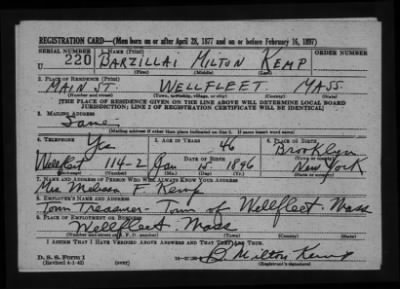 REGISTRATION CARD—(Men born on or after April 28, 1877 and on or before February 16, 1897)
SERIAL NUMBER 1. NAME (Print) ORDER NUMBER
U 220 BARZILLAI MILTON KEMP
(First) (Middle) (Last)
2. PLACE OF RESIDENCE (Print)
MAIN ST. WELLFLEET MASS
(Number and street) (Town, township, village, or city) (County) (State)
[THE PLACE OF RESIDENCE GIVEN ON THE LINE ABOVE WILL DETERMINE LOCAL BOARD
JURISDICTION; LINE 2 OF REGISTRATION CERTIFICATE WILL BE IDENTICAL]
3. MAILING ADDRESS
Same
[Mailing address if other than place indicated on line 2. If same insert word same]
4. TELEPHONE 5. AGE IN YEARS 6. PLACE OF BIRTH
Yes 46 Brooklyn
DATE OF BIRTH (Town or county)
114-2 Jan 15 1896 New York
(Exchange) (Number) (Mo.) (Day) (Yr.) (State or country)
7. NAME AND ADDRESS OF PERSON WHO WILL ALWAYS KNOW YOUR ADDRESS
Mrs Melissa F. Kemp
8. EMPLOYER'S NAME AND ADDRESS
Town Treasurer - Town of Wellfleet Mass
9. PLACE OF EMPLOYMENT OR BUSINESS
Wellfleet Mass
(Number and street or R. F. D. number) (Town) (County) (State)
I AFFIRM THAT I HAVE VERIFIED ABOVE ANSWERS AND THAT THEY ARE TRUE.
D. S. S. Form 1
(Revised 4-1-42) (over) B Milton Kemp
(Registrant's signature)